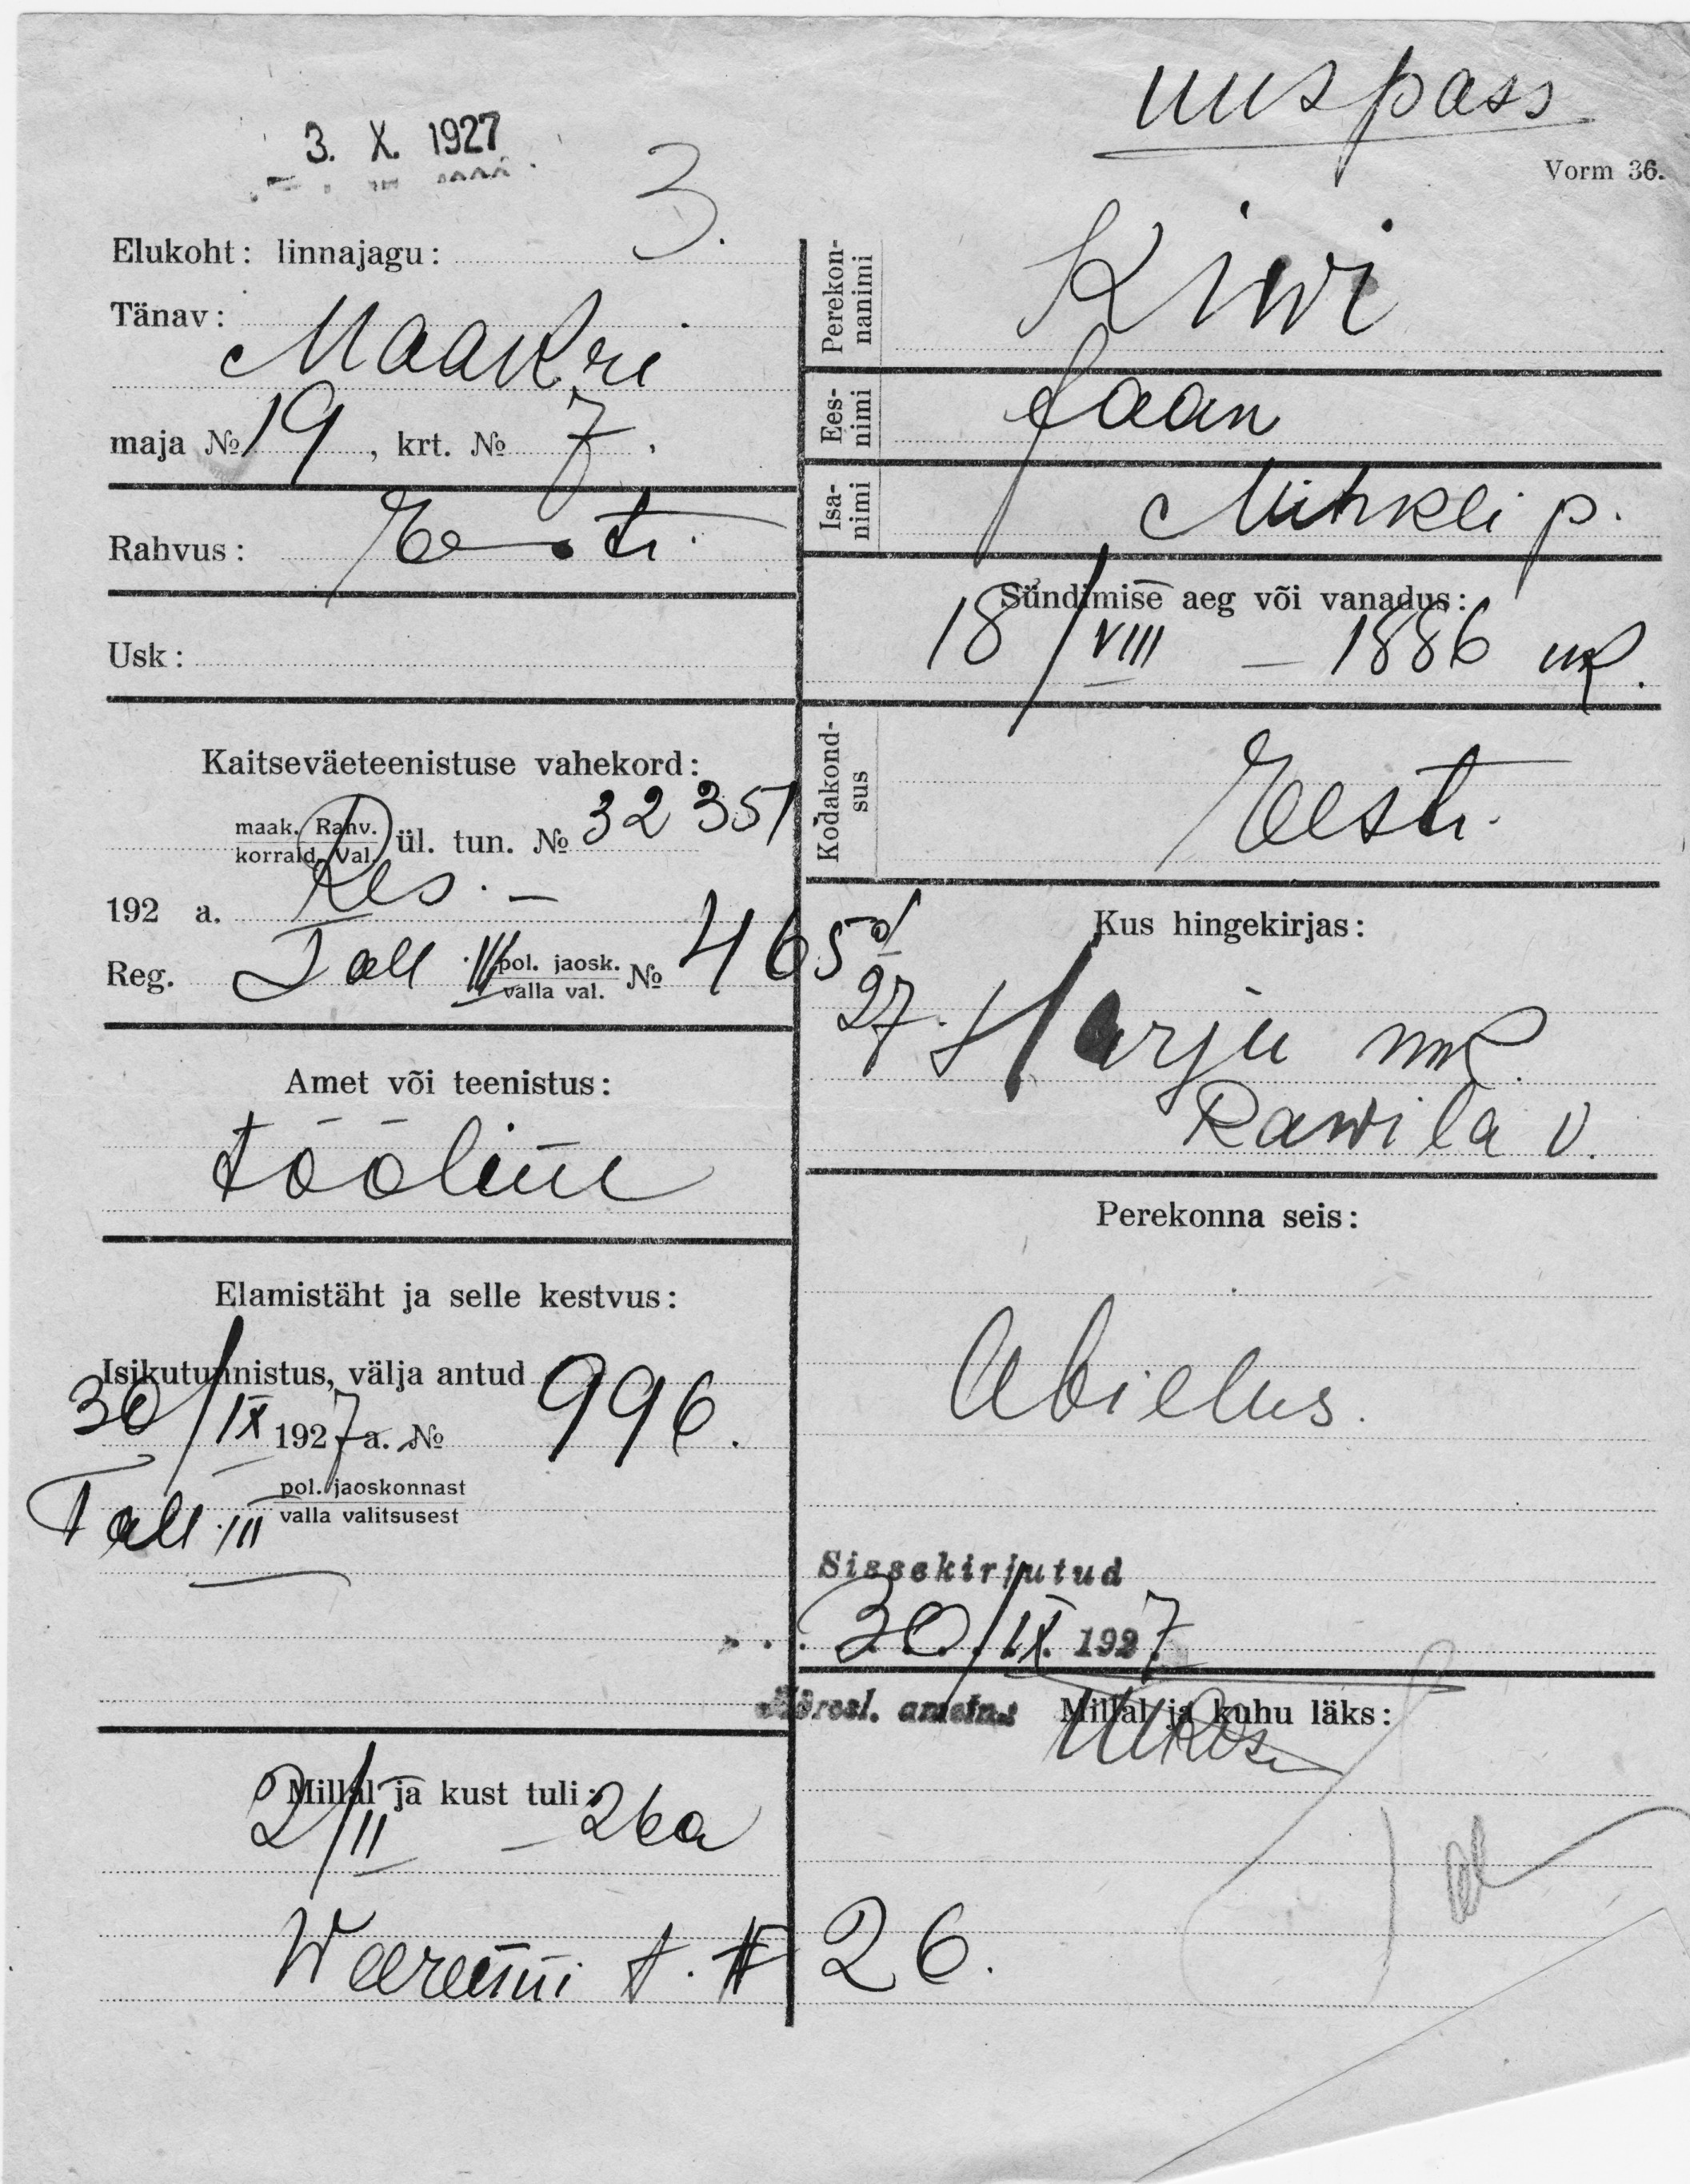 uus pass
3. X. 1927
Vorm 36.
Elukoht: linnajagu: 3.
Tänav:
Maakri
maja № 19, krt. № 7.
Rahvus: Eesti.
Usk:
Kaitseväeteenistuse vahekord:
maak. Rahv.
korrald. Val. ül. tun. № 32351
192 a. Res. –
Reg. Tall. III pol. jaosk. № 465
valla val.
27.
Amet või teenistus:
tööline
Elamistäht ja selle kestvus:
Isikutunnistus, välja antud
30/IX 1927 a. № 996.
Tall. III pol. jaoskonnast
valla valitsusest
Millal ja kust tuli:
2/II – 26 a
t. № 26.
Perekon-
nanimi
Kiwi
Ees-
nimi
Jaan
Isa-
nimi
Mihkli p.
Sündimise aeg või vanadus:
18/VIII – 1886
Kodakond-
sus
Eesti.
Kus hingekirjas:
Harju mk.
Rawila v.
Perekonna seis:
Abielus.
Sissekirjutud
30/IX 1927
Adresl. ametn.
Millal ja kuhu läks: